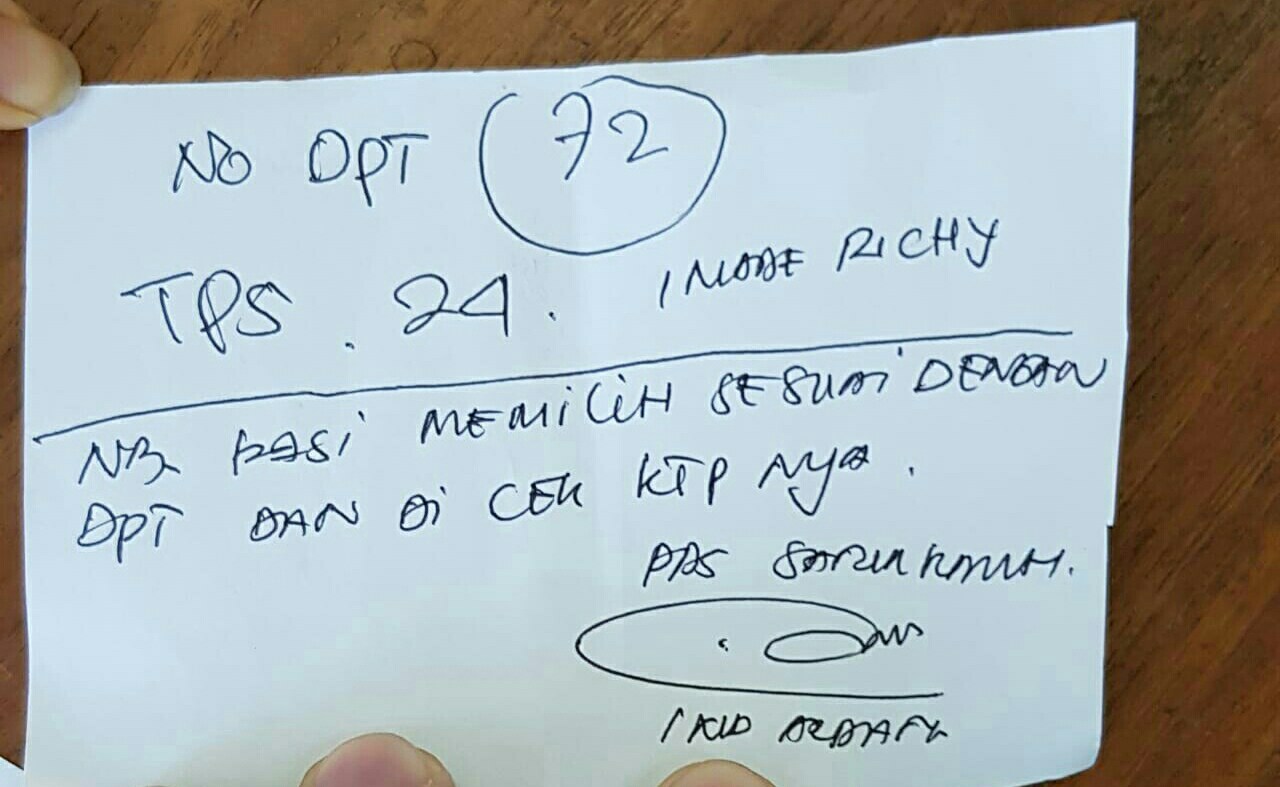 NO DPT 72
TPS . 24. I MADE RICHY
NB KASI MEMILIH SESUAI DENGAN
DPT DAN DI CEK KTP NYA .
PPS